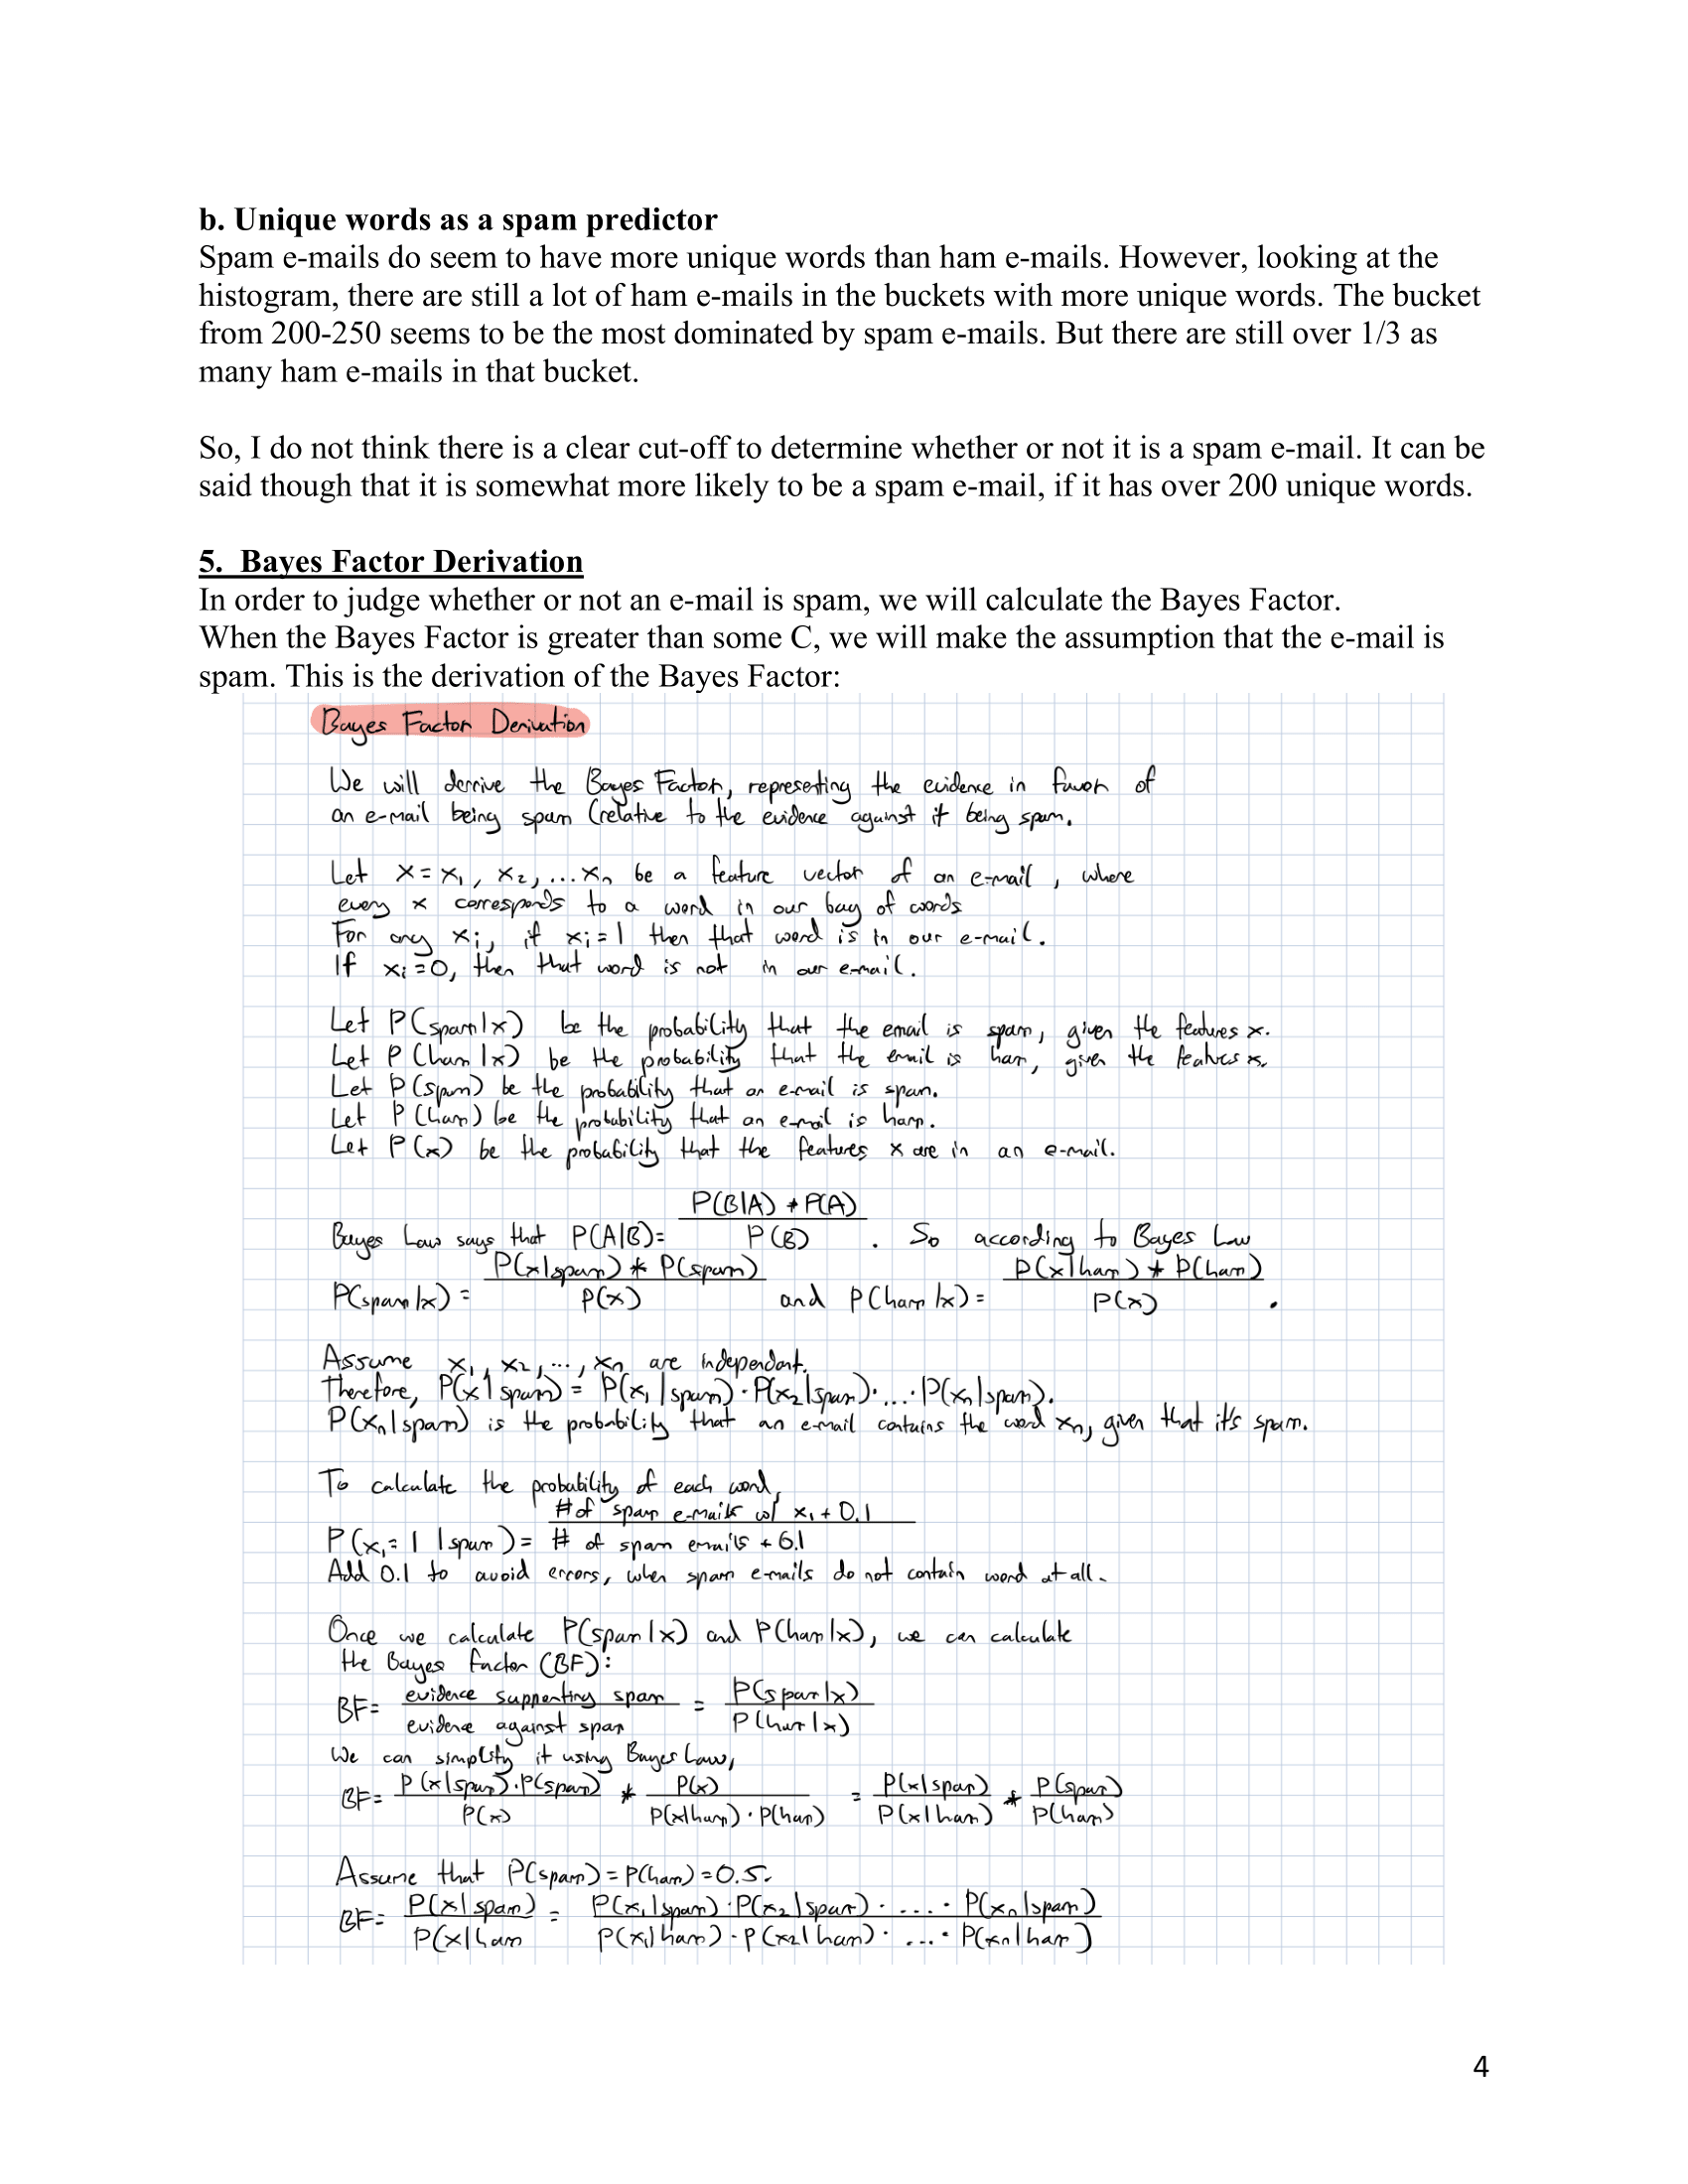 b. Unique words as a spam predictor
Spam e-mails do seem to have more unique words than ham e-mails. However, looking at the
histogram, there are still a lot of ham e-mails in the buckets with more unique words. The bucket
from 200-250 seems to be the most dominated by spam e-mails. But there are still over 1/3 as
many ham e-mails in that bucket.
So, I do not think there is a clear cut-off to determine whether or not it is a spam e-mail. It can be
said though that it is somewhat more likely to be a spam e-mail, if it has over 200 unique words.
5. Bayes Factor Derivation
In order to judge whether or not an e-mail is spam, we will calculate the Bayes Factor.
When the Bayes Factor is greater than some C, we will make the assumption that the e-mail is
spam. This is the derivation of the Bayes Factor:
Bayes Factor Derivation
We will derrive the Bayes Factor, representing the evidence in favor of
an e-mail being spam (relative to the evidence against it being spam.
Let x = x₁, x₂, ... xₙ be a feature vector of an e-mail, where
every x corresponds to a word in our bag of words
For any xᵢ, if xᵢ = 1 then that word is in our e-mail.
If xᵢ = 0, then that word is not in our e-mail.
Let P(spam|x) be the probability that the email is spam, given the features x.
Let P(ham|x) be the probability that the email is ham, given the features x.
Let P(spam) be the probability that an e-mail is spam.
Let P(ham) be the probability that an e-mail is ham.
Let P(x) be the probability that the features x are in an e-mail.
P(B|A) * P(A)
Bayes Law says that P(A|B) = P(B) . So according to Bayes Law
P(x|spam) * P(spam) P(x|ham) * P(ham)
P(spam|x) = P(x) and P(ham|x) = P(x) .
Assume x₁, x₂, ..., xₙ are independant.
Therefore, P(x|spam) = P(x₁|spam) · P(x₂|spam) · ... · P(xₙ|spam).
P(xₙ|spam) is the probability that an e-mail contains the word xₙ, given that it's spam.
To calculate the probability of each word,
# of spam e-mails w/ x₁ + 0.1
P(x₁ = 1 | spam) = # of spam emails + 0.1
Add 0.1 to avoid errors, when spam e-mails do not contain word at all.
Once we calculate P(spam|x) and P(ham|x), we can calculate
the Bayes factor (BF):
BF = evidence supporting spam = P(spam|x)
evidence against spam P(ham|x)
We can simplify it using Bayes Law,
BF = P(x|spam) · P(spam) * P(x) = P(x|spam) * P(spam)
P(x) P(x|ham) · P(ham) P(x|ham) P(ham)
Assume that P(spam) = P(ham) = 0.5.
BF = P(x|spam) = P(x₁|spam) · P(x₂|spam) · .... · P(xₙ|spam)
P(x|ham P(x₁|ham) · P(x₂|ham) · ... · P(xₙ|ham)
4